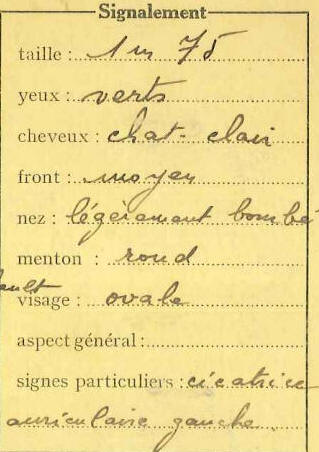 Signalement
taille : 1 m 75
yeux : verts
cheveux : chat- clair
front : moyen
nez : légèrement bombé
menton : rond
visage : ovale
aspect général :
signes particuliers : cicatrice
auriculaire gauche.